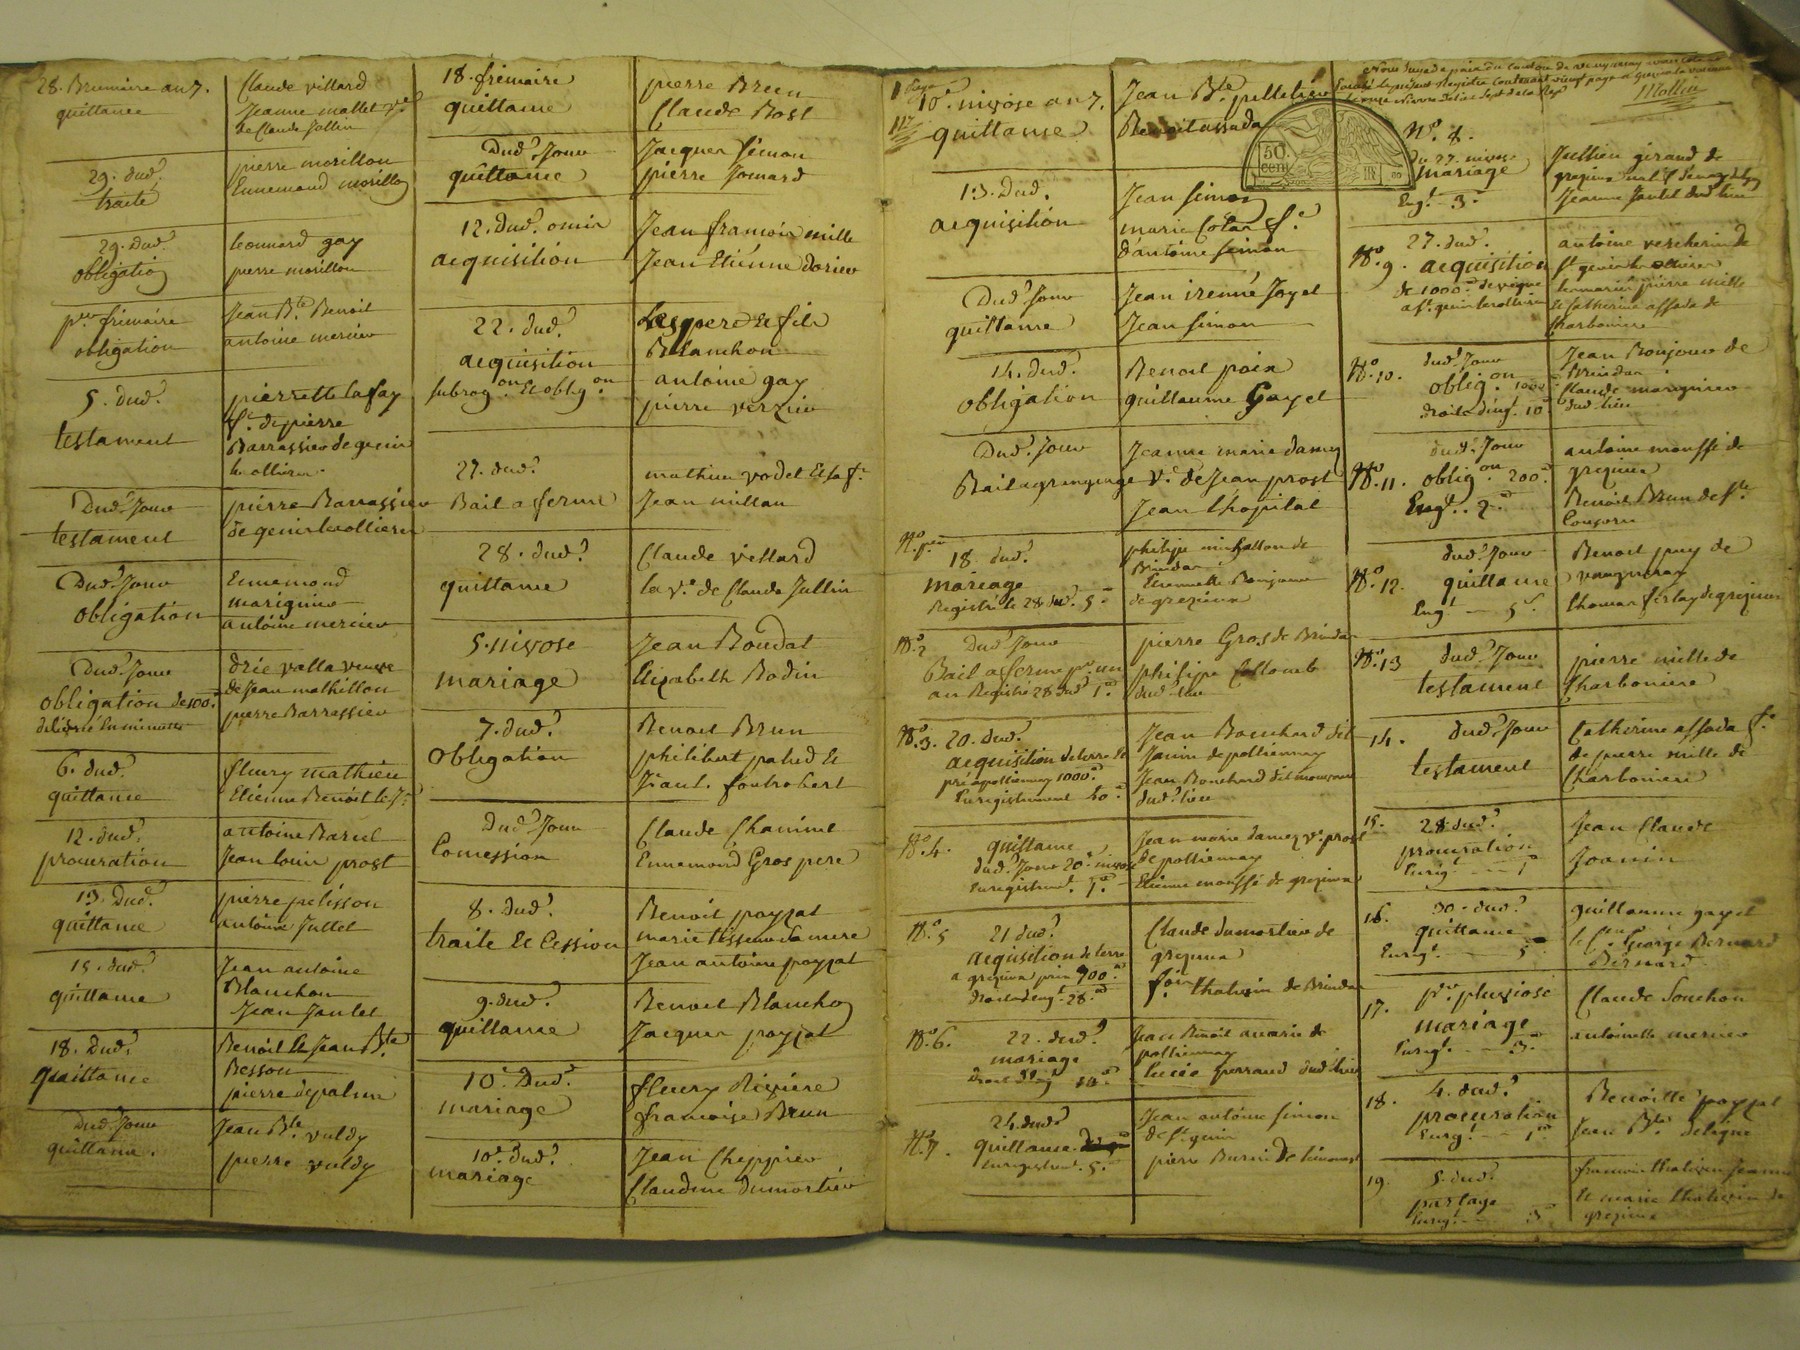 28. Brumaire an 7.
quittance
Claude villard
Jeanne mallet v.e
de Claude Jullin
29. dud.t
traité
pierre morillon
Ennemond morillon
29. dud.t
obligation
leonnard gay
pierre morillon
p.er frimaire
obligation
Jean B.te Benoit
antoine mercier
5. dud.t
testament
pierrette lafay
f.e de pierre
Barrassier de genis
les ollieres.
Dud.t Jour
testament
pierre Barrassier
de genis les ollieres
Dud.t Jour
obligation
Ennemond
marignier
antoine mercier
Dud.t Jour
obligation de 100.
delivrée en minutte
valla veuve
de Jean mathillon
pierre Barrassier
6. dud.t
quittance
fleury mathieu
Etienne Benoit le J.e
12. dud.t
procuration
antoine Barul
Jean louis prost
13. Dud.t
quittance
pierre pelisson
antoine Juttet
15. dud.t
quittance
Jean antoine
Blanchon
Jean Jautet
18. Dud.t
Quittance
Benoit et Jean B.te
Besson
pierre depalun
Dud.t Jour
quittance.
Jean B.te vuldy
pierre vuldy
18. frimaire
quittance
pierre Brun
Claude Bost
Dud.t Jour
quittance
Jacques Simon
pierre Jomard
12. Dud.t omis
acquisition
Jean francois mille
Jean Etienne dorier
22. dud.t
acquisition
subrog.on et oblig.on
Les pere et fils
Blanchon
antoine gay
pierre verzier
27. dud.t
Bail a ferme
mathieu vodet et sa f.e
Jean millan
28. dud.t
quittance
Claude villard
la v.e de Claude Jullin
5. nivose
mariage
Jean Boudat
Elizabeth Bodin
7. dud.t
obligation
Benoit Brun
philibert patud et
f.ant. foutrobert
Dud.t Jour
Concession
Claude Chanine
Ennemond Gros pere
8. dud.t
traité et Cession
Benoit poyzat
marie tisseur sa mere
Jean antoine poyzat
9. dud.t
quittance
Benoit Blanchon
Jacques poyzat
10. Dud.t
mariage
fleury Riviere
francoise Brun
10. dud.t
mariage
Jean Cheppier
Claudine dumortier
1 page
10. nivose an 7.
quittance
Jean B.te pelletier
Benoit assada
13. Dud.t
acquisition
Jean simon
marie Cotar f.e
d'antoine simon
Dud.t Jour
quittance
Jean irenné Jayet
Jean simon
14. dud.t
obligation
Benoit poix
guillaume Gayet
Dud.t Jour
Bail a grangeage
Jeanne marie damez
v.e de Jean prost
Jean l'hopital
N.o p.er
18. dud.t
mariage
Registré le 28 dud.t 5.
philippe michallon de
Brindas
Etiennette Bonjour
de grezieux
N.o 2
dud.t Jour
Bail a ferme p.r un
an Registré 28 dud.t 1.
pierre Gros de Brindas
philippe Collomb
dud.t lieu
N.o 3. 20. dud.t
acquisition de terre et
pré a pollionnay 1000.
Enregistrement 40
Jean Bouchard dit
Janin de pollionnay
Jean Bouchard dit
dud.t lieu
N.o 4.
quittance
dud.t Jour 20. nivose
Enregistrem.t 5.
Jean marie damez v.e prost
de pollionnay
Etienne mouffé de grezieux
N.o 5
21 dud.t
acquisition de terre
a grezieux prix 900
droit d'Eng.t 28
Claude dumortier de
grezieux
f.ois thalivin de Brindas
N.o 6.
22. dud.t
mariage
droit d'Eng.t 10
Jean Benoit de
pollionnay
lucie perraud dud.t lieu
N.o 7.
24. dud.t
quittance
Enregistrem.t 5.
Jean antoine simon
de s.t genis
pierre Burnin de
Nous Juge de paix du canton de vaugneray avons cotté et
parafé le present Registre Contenant neuf pages
le onze nivose l'an Sept de la Rep.
Mollin
50.
cen.
N.o 8.
Du 27. nivose
mariage
Eng.t 3.
Jullien giraud de
Jeanne Jautet dud.t lieu
27. dud.t
N.o 9. acquisition
de 1000. de vigne
a s.t genis les ollieres
antoine vescherin de
s.t genis les ollieres
pierre mille
et catherine assada de
charboniere
N.o 10.
dud.t Jour
oblig.on 1000
droit d'eng.t 10
Jean Bonjour de
Brindas
Claude marignier
dud.t lieu
N.o 11.
dud.t Jour
oblig.on 200.
Eng.t 2
antoine mouffé de
grezieux
Benoit Brun de s.te
Consorce
N.o 12.
dud.t Jour
quittance
Eng.t — 5
Benoit puy de
vaugneray
thomas ferlay de grezieux
N.o 13
dud.t Jour
testament
pierre mille de
Charboniere
14.
dud.t Jour
testament
Catherine assada f.e
de pierre mille de
Charboniere
15.
28. dud.t
procuration
Enrg.t — 1
Jean Claude
Joanin
16.
30. dud.t
quittance
Enrg.t — 5
guillaume gayet
le C.en George Bernard
Bernard
17.
p.er pluviose
mariage
Enrg.t — 3
Claude Souchon
antoinette mercier
18.
4. dud.t
procuration
Enrg.t — 1
Benoitte poyzat
Jean B.te deligne
19.
5. dud.t
partage
Enrg.t — 3
francois thalivin
et marie thalivin de
grezieux